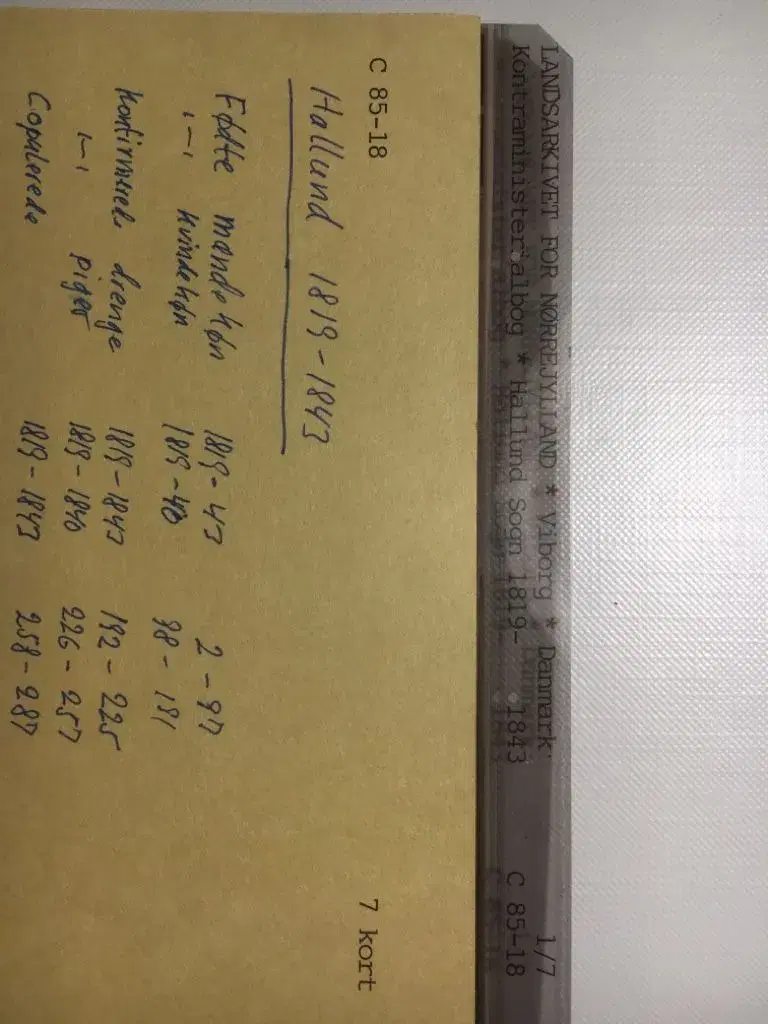 LANDSARKIVET FOR NØRREJYLLAND * Viborg * Danmark 1/7
Kontraministerialbog * Hallund Sogn 1819- 1843 C 85-18
C 85-18 7 kort
Hallund 1819-1843
Fødte mandekøn 1819-43 2-97
"-" kvindekøn 1819-40 98-191
Konfirmerede drenge 1819-1843 192-225
"-" piger 1819-1840 226-257
Copulerede 1819-1843 258-287